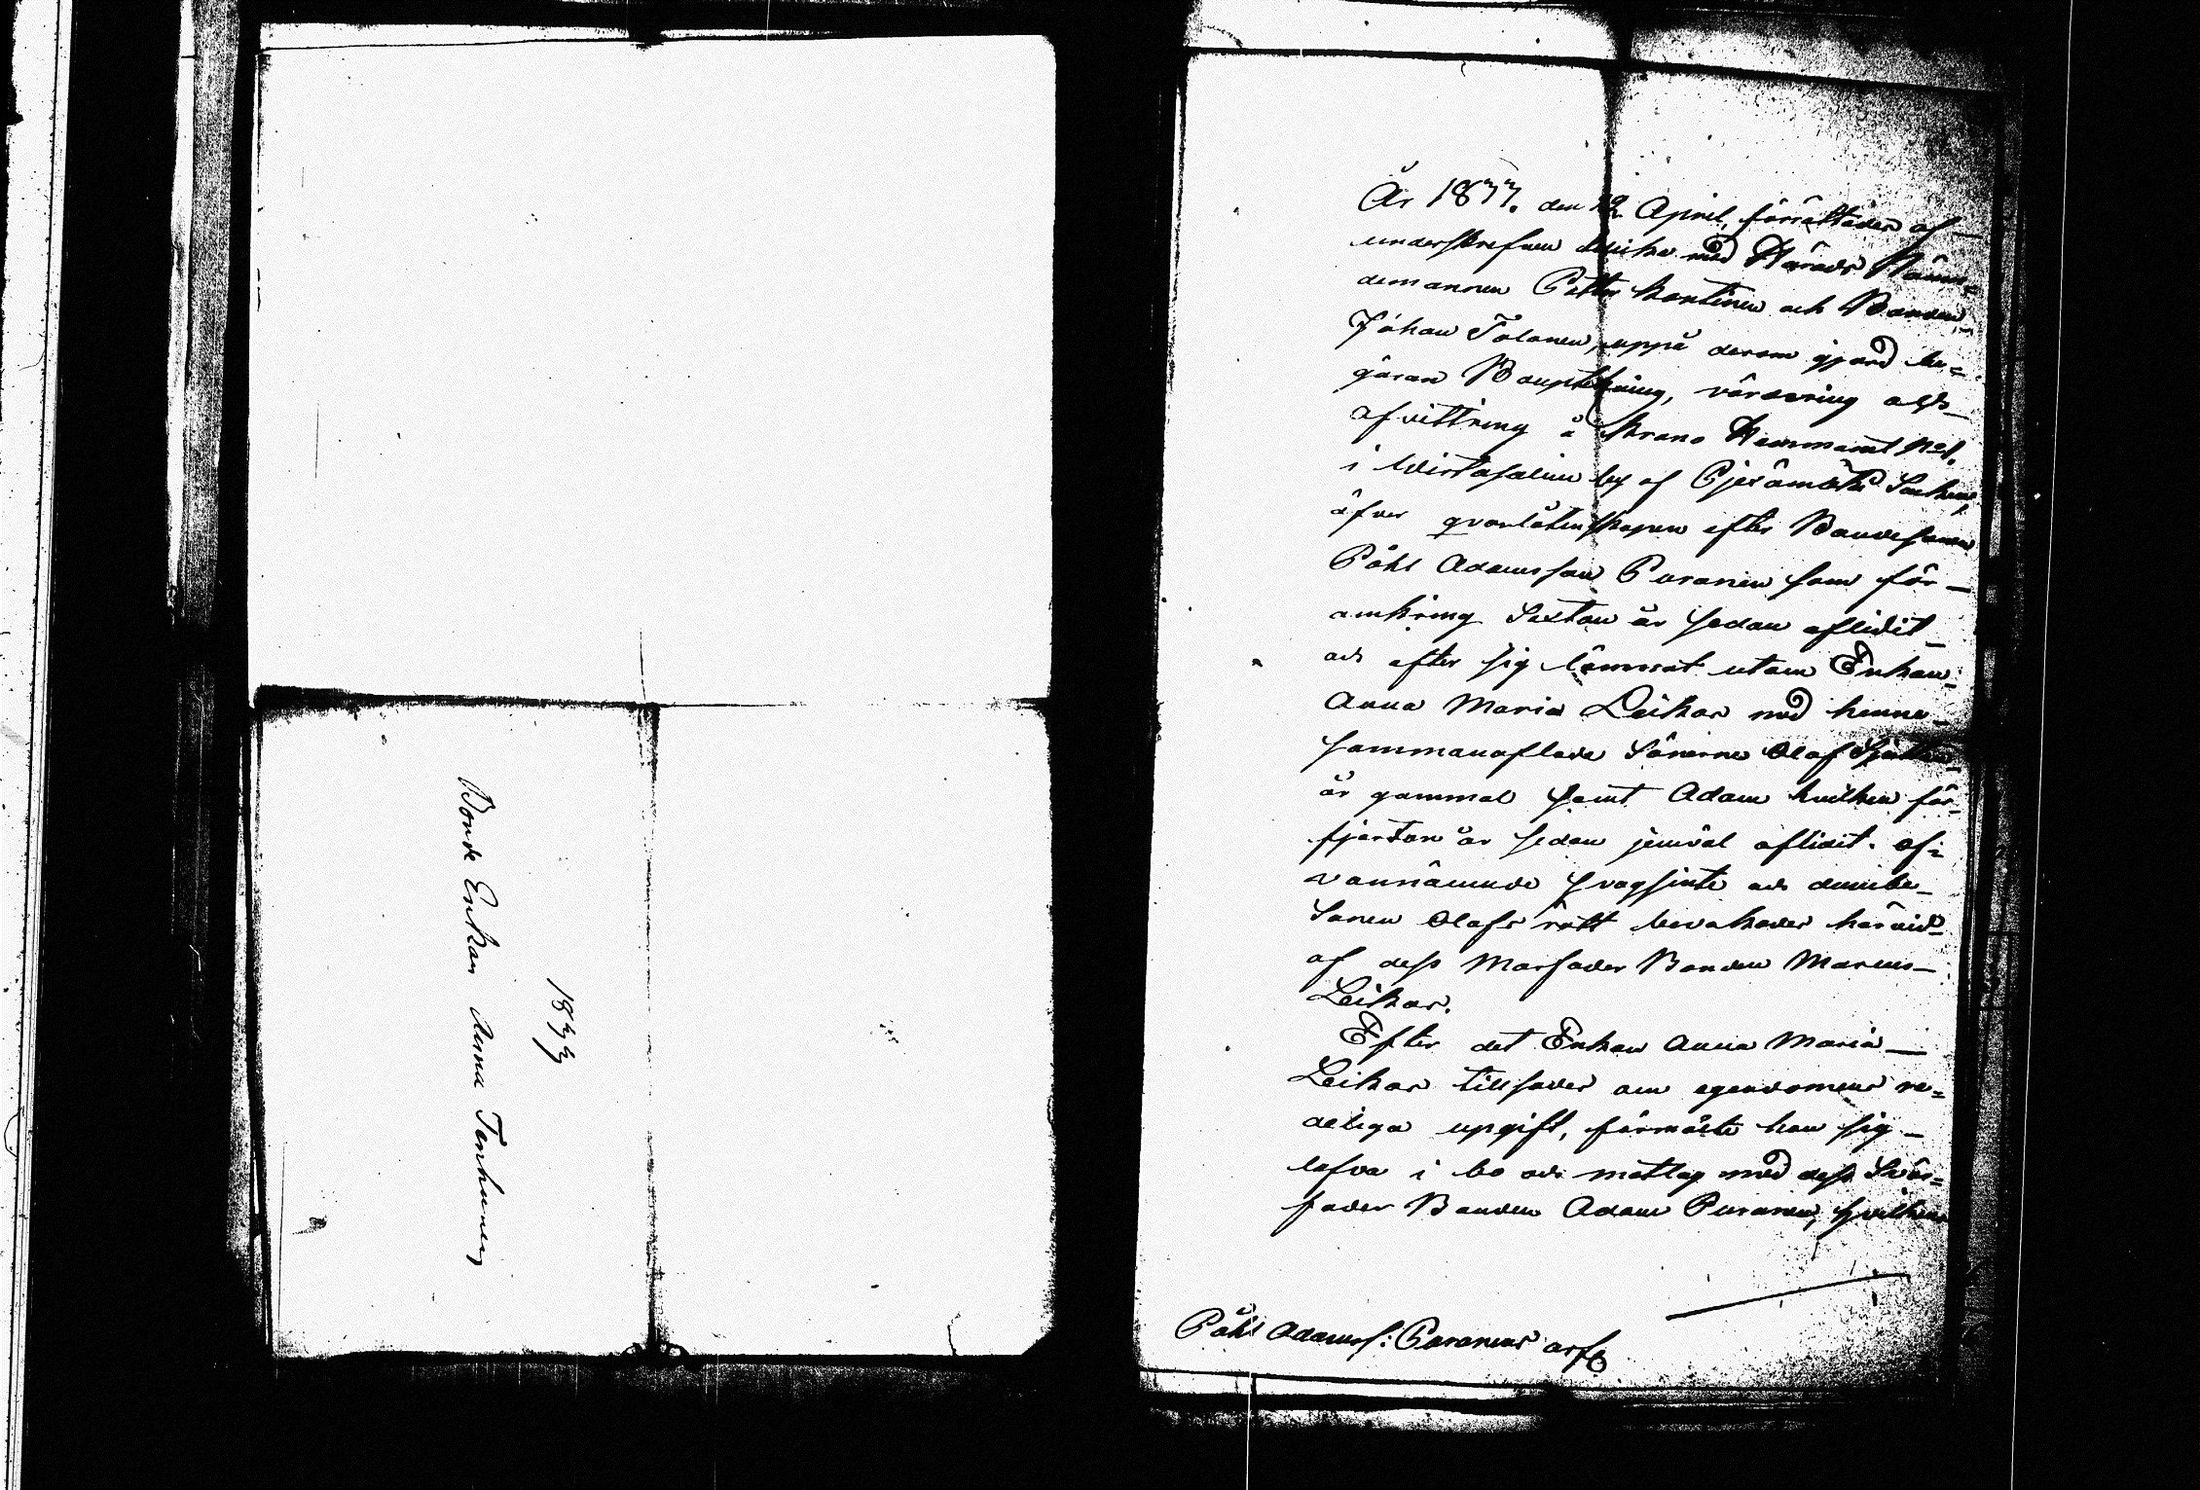 Bonde Enkan Anna Tenhunens
1877
År 1877. den 12 April, förrättades af
underskrefven med Härads Nämn=
demannen Petter Kontinen och Bonden
Johan Tolonen, uppå derom gjord be=
gäran Bouptekning, värdering och
afvittring å Krono Hemmanet No 1.
i Wirtasalmi by af Pjexämäki Socken,
öfver qvarlåtenskapen efter Bondesonen
Påhl Adamsson Puranen som för
omkring Sextan år sedan aflidit
och efter sig lämnat utom Enkan
Anna Maria Leikas med henne
sammanaflade Sönerne Olaf
år gammal samt Adam hvilken för
fjortan år sedan jemväl aflidit. of=
vannämnde
Sonen Olafs rätt bevakades härvid
af dess Morfader Bonden Marcus
Leikas.
Efter det Enkan Anna Maria
Leikas tillsades om egendomens re=
deliga upgift, förmälte hon sig
lefva i bo och matlag med dess Svär=
fader Bonden Adam Puranen, hvilken
Påhl Adamss: Puranens arfv